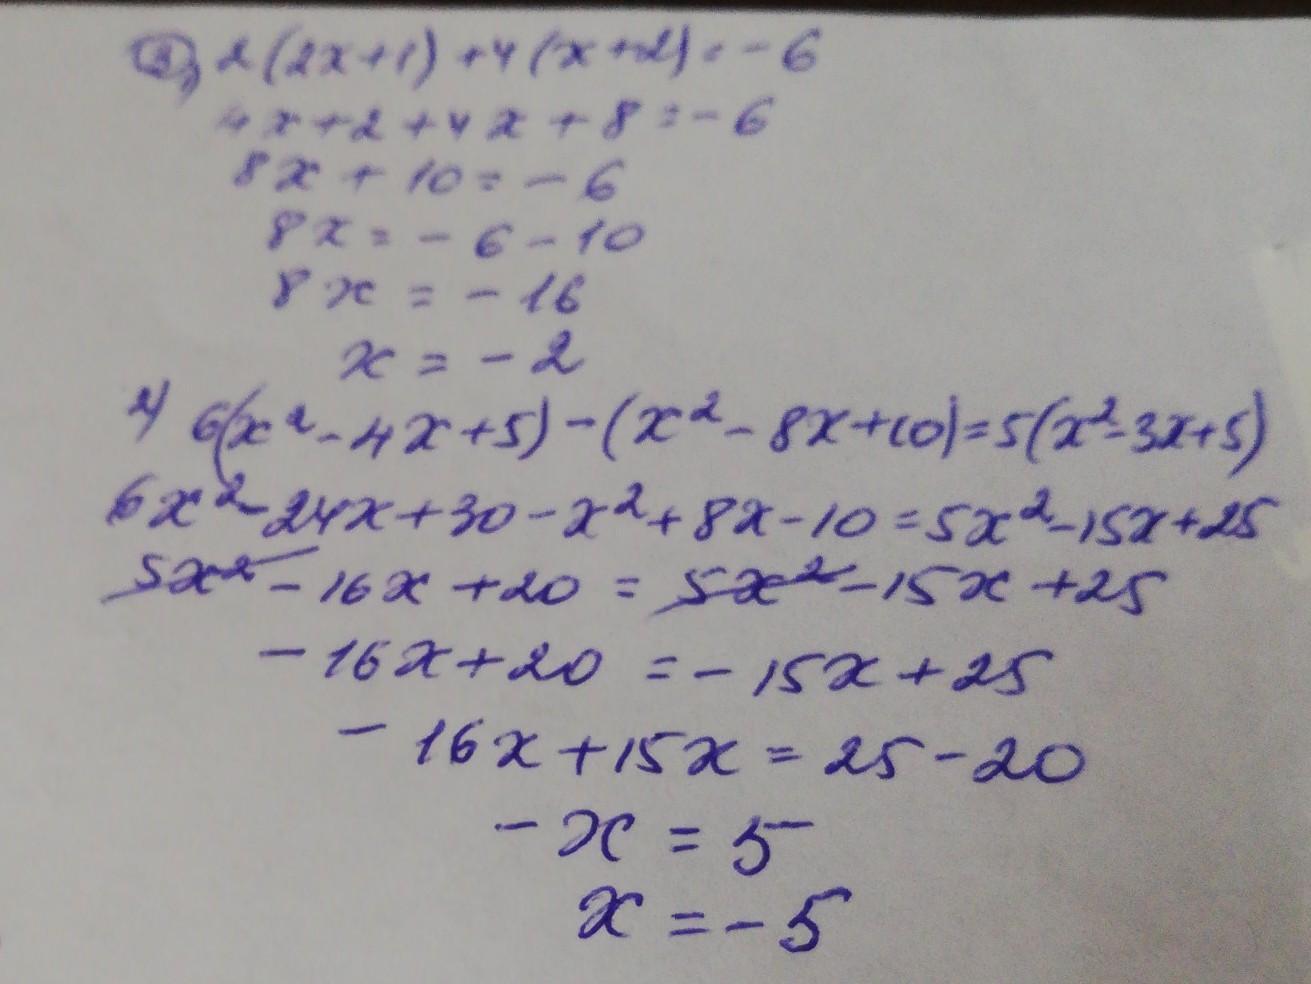 2(2x+1)+4(x+2)=-6
4x+2+4x+8=-6
8x+10=-6
8x=-6-10
8x=-16
x=-2
2) 6(x²-4x+5)-(x²-8x+10)=5(x²-3x+5)
6x²-24x+30-x²+8x-10=5x²-15x+25
5x²-16x+20=5x²-15x+25
-16x+20=-15x+25
-16x+15x=25-20
-x=5
x=-5